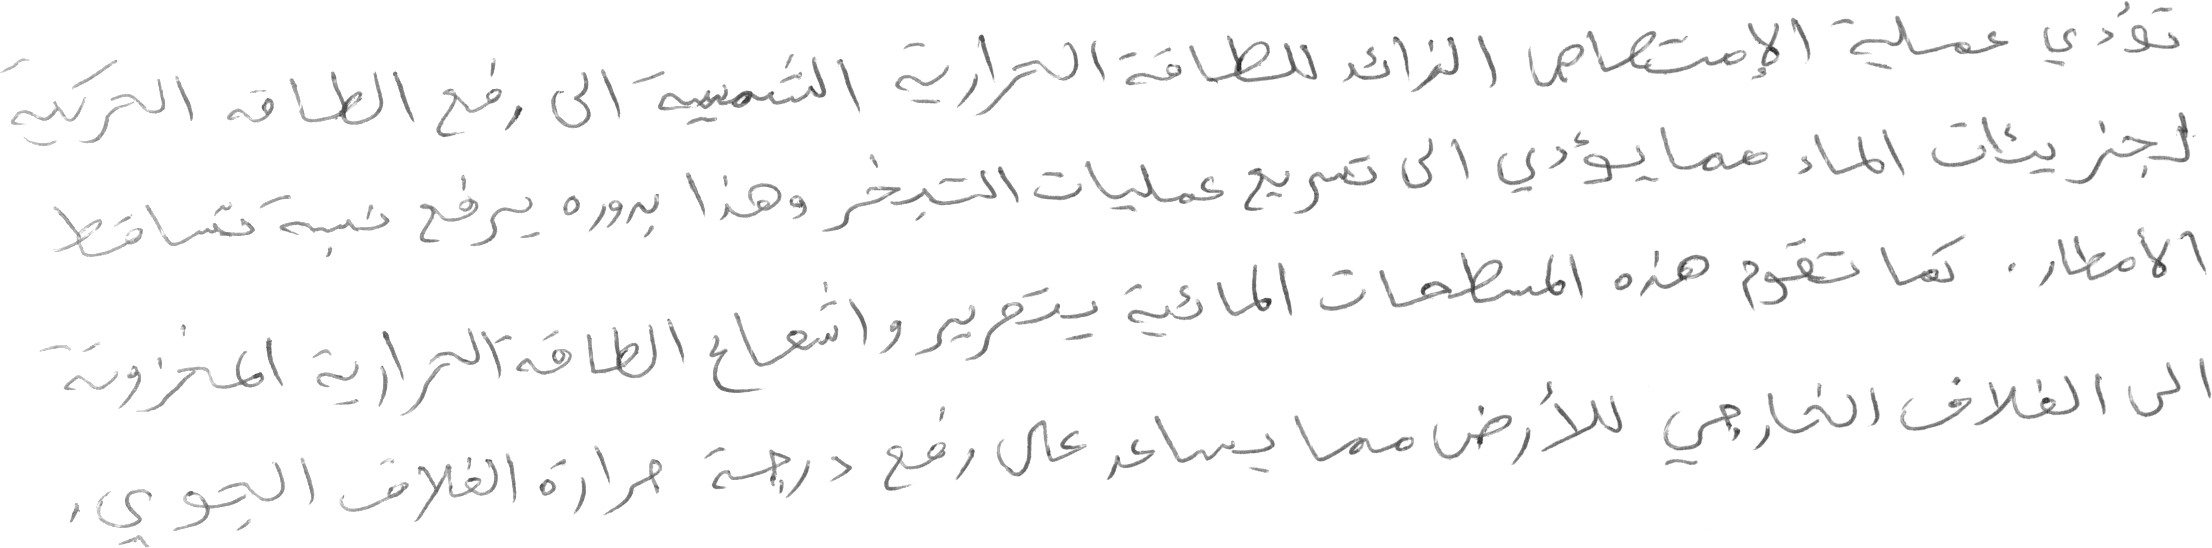 تؤدي عملية الإمتصاص الزائد للطاقة الحرارية الشمسية الى رفع الطاقه الحركية
لجزيئات الماء مما يؤدي الى تسريع عمليات التبخر وهذا بدوره يرفع نسبة تساقط
الأمطار. كما تقوم هذه المسطحات المائية بتحرير واشعاع الطاقة الحرارية المخزونة
الى الغلاف الخارجي للأرض مما يساعد على رفع درجة حرارة الغلاف الجوي.